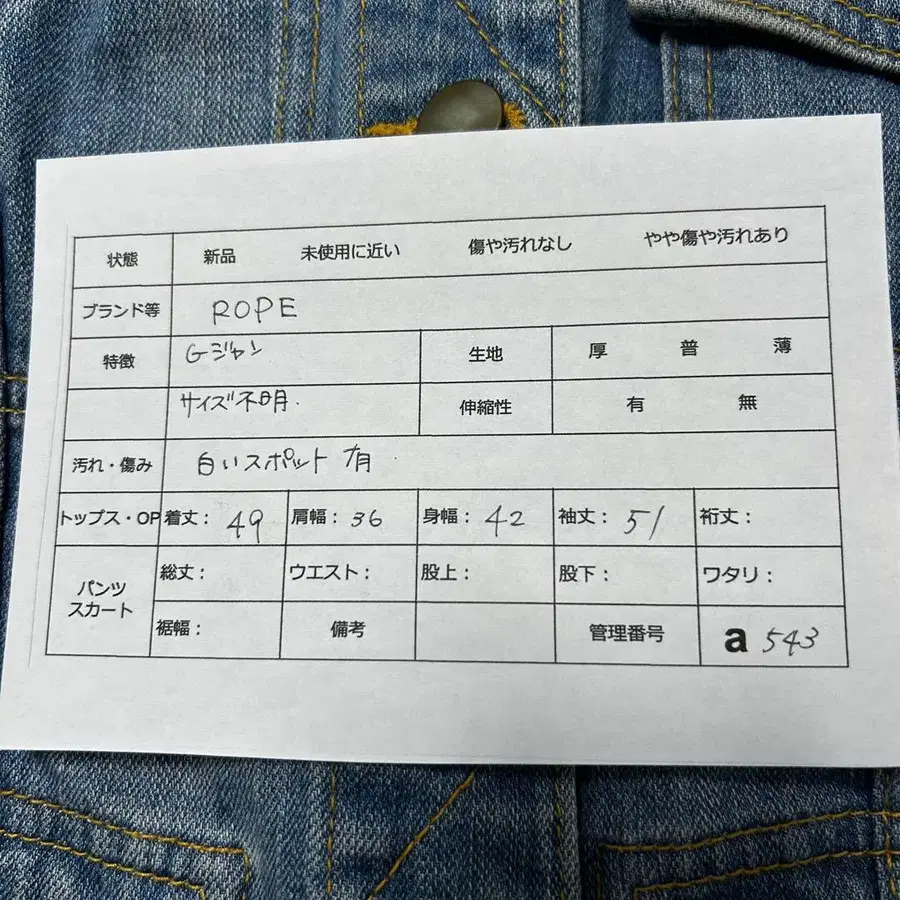 状態 新品 未使用に近い 傷や汚れなし やや傷や汚れあり
ブランド等 ROPE
特徴 Gジャン 生地 厚 普 薄
サイズ不明. 伸縮性 有 無
汚れ・傷み 白いスポット有
トップス・OP 着丈: 49 肩幅: 36 身幅: 42 袖丈: 51 裄丈:
パンツ スカート 総丈: ウエスト: 股上: 股下: ワタリ:
裾幅: 備考 管理番号 a 543